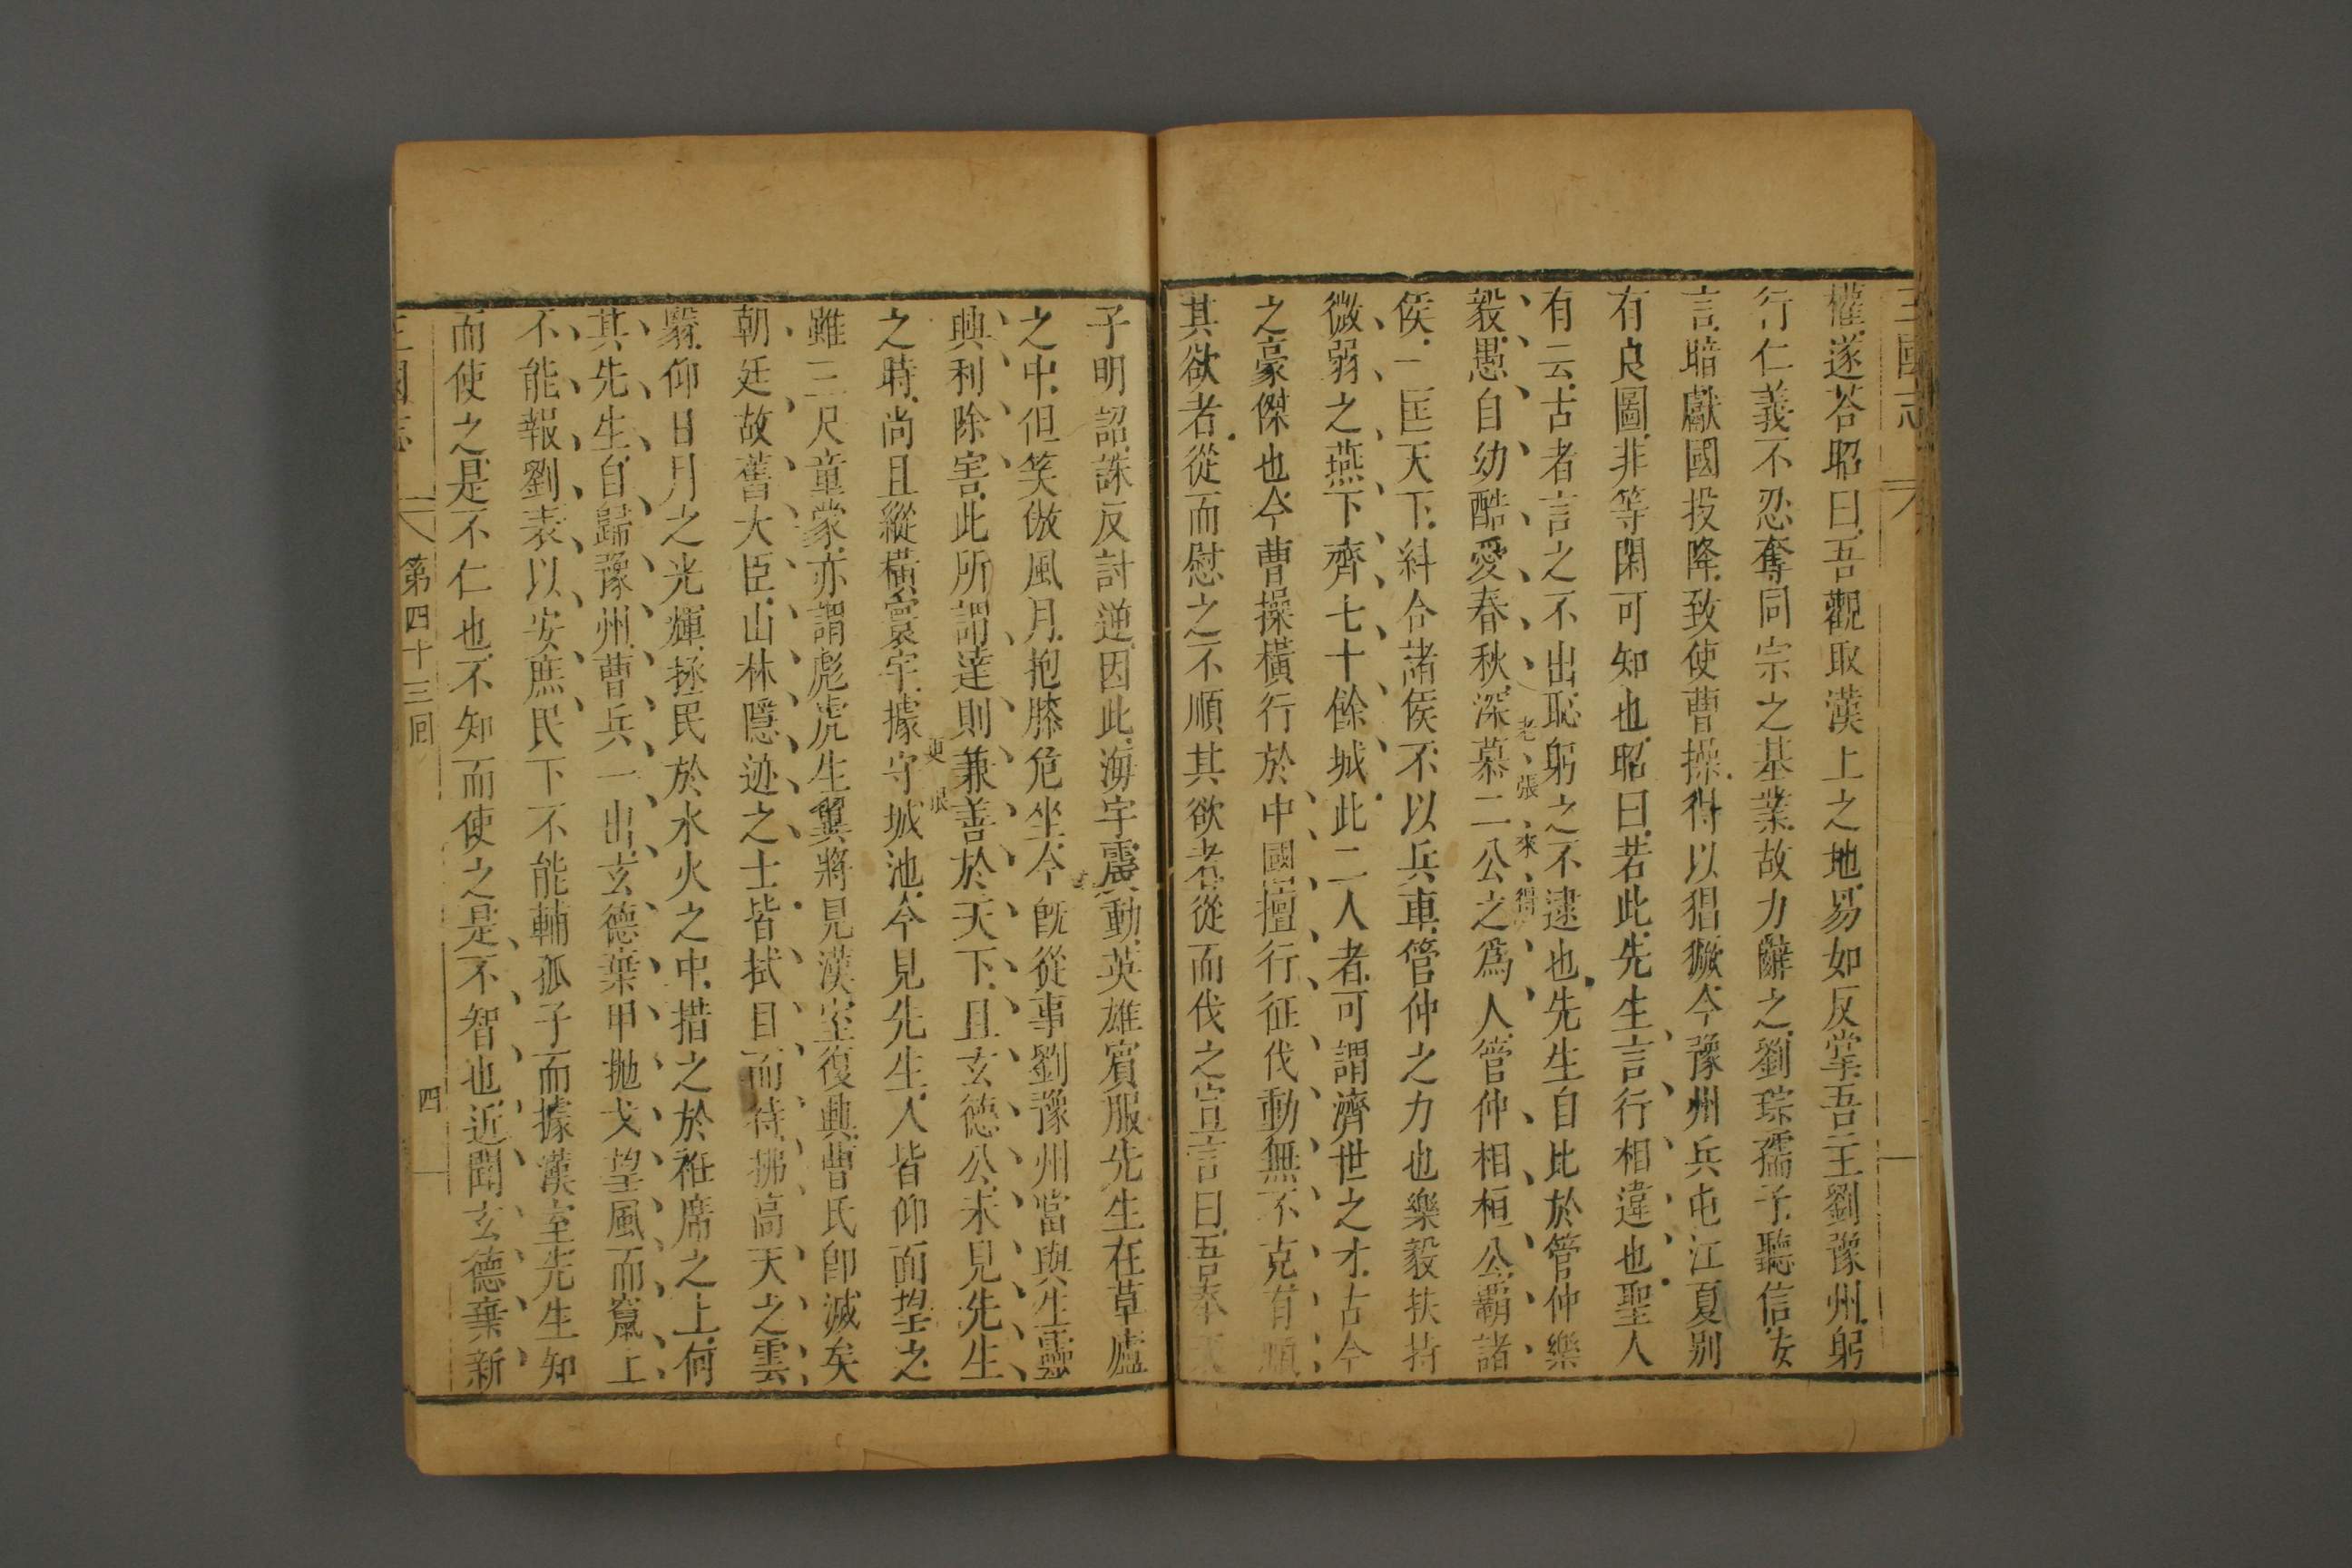 三國志
權遂荅昭曰吾觀取漢上之地易如反掌吾主劉豫州躬
行仁義不忍奪同宗之基業故力辭之劉琮孺子聽信妄
言暗獻國投降致使曹操得以猖獗今豫州兵屯江夏别
有良圖非等閑可知也昭曰若此先生言行相違也聖人
有云古者言之不出恥躬之不逮也先生自比於管仲樂
老張來得
毅愚自幼酷愛春秋深慕二公之爲人管仲相桓公霸諸
侯一匡天下糾合諸侯不以兵車管仲之力也樂毅扶持
微弱之燕下齊七十餘城此二人者可謂濟世之才古今
之豪傑也今曹操橫行於中國擅行征伐動無不克有順
其欲者從而慰之不順其欲者從而伐之宣言曰吾奉天
子明詔誅反討逆因此海宇震動英雄賓服先生在草廬
之中但笑傲風月抱膝危坐今旣從事劉豫州當與生靈
興利除害此所謂達則兼善於天下且玄德公未見先生
之時尚且縱橫寰宇據守城池今見先生人皆仰面望之
雖三尺童蒙亦謂彪虎生翼將見漢室復興曹氏卽滅矣
朝廷故舊大臣山林隱迹之士皆拭目而待拂高天之雲
翳仰日月之光輝拯民於水火之中措之於袵席之上何
其先生自歸豫州曹兵一出玄德棄甲抛戈望風而竄上
不能報劉表以安庶民下不能輔孤子而據漢室先生知
而使之是不仁也不知而使之是不智也近聞玄德棄新
三國志
第四十三回
四